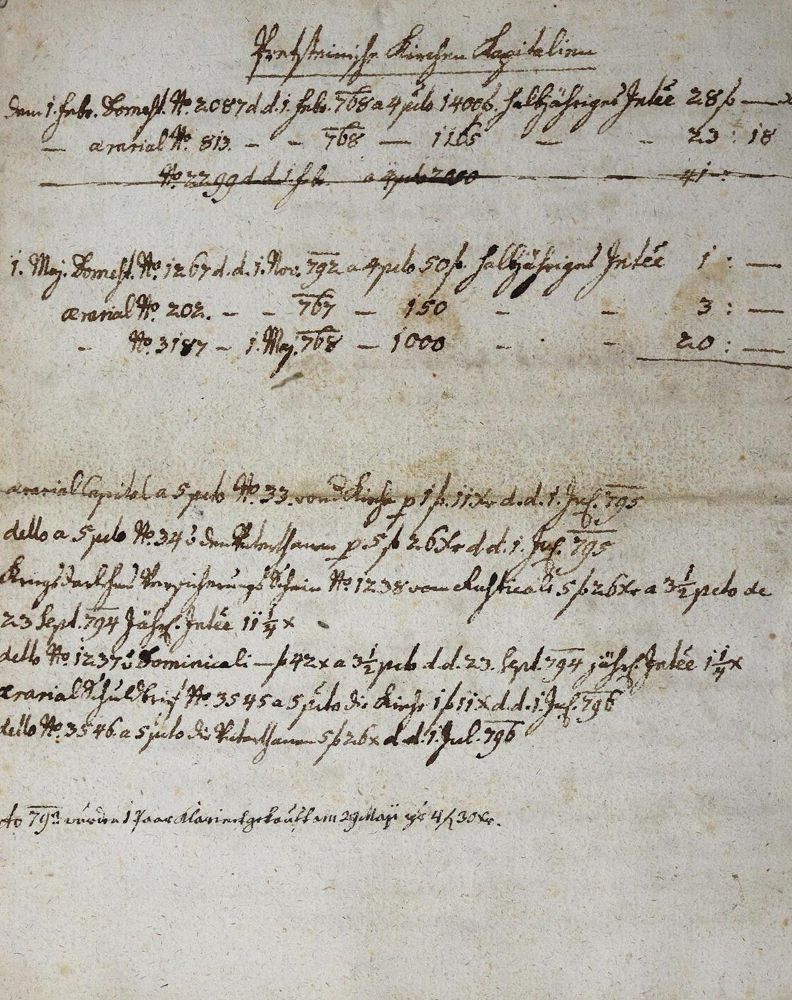 Kirchen Kapitalien
dem 1. Febr. Domest. No. 2087 d. d. 1. Febr. 768 a 4 pcto 1400 f. halbjähriges Intée 28 f —
— ærarial No. 813. - - 768 — 1165 — - 23 : 18
No. 2299 d d. 1. Feb. a 4 pcto 2000 — - 41 : —
1. Maj. Domest. No. 1267 d. d. 1. Nov. 792 a 4 pcto 50 f. halbjähriges Intée 1 : —
ærarial No. 202. - - 767 - 150 - - 3 : —
- No. 3187 - 1. Maj. 768 — 1000 - - 20 : —
ærarial Capital a 5 pcto No. 33. von d Kirche p 1 f. 11 Xr d. d. 1. Jul. 795
detto a 5 pcto No. 34 p 5 f 26 Xr d d. 1. Jul. 795
Kriegsdarlehens Versicherungs Schein No. 1238 vom Rusticali 5 f 26 Xr a 3 1/2 pcto de
23 Sept. 794 Jährl. Intée 11 1/4 x
detto No. 1237 Dominicali — f 42 x a 3 1/2 pcto d d. 23. Sept. 794 jährl. Intée 1 1/4 x
ærarial Schuldbrief No. 3545 a 5 pcto die Kirche 1 f 11 x d. d. 1. Jul. 796
detto No. 3546 a 5 pcto die 5 f 26 x d d. 1. Jul. 796
wurden 1 Paar Klarinet gekauft am 29 Maji 4 f 30 Xr.